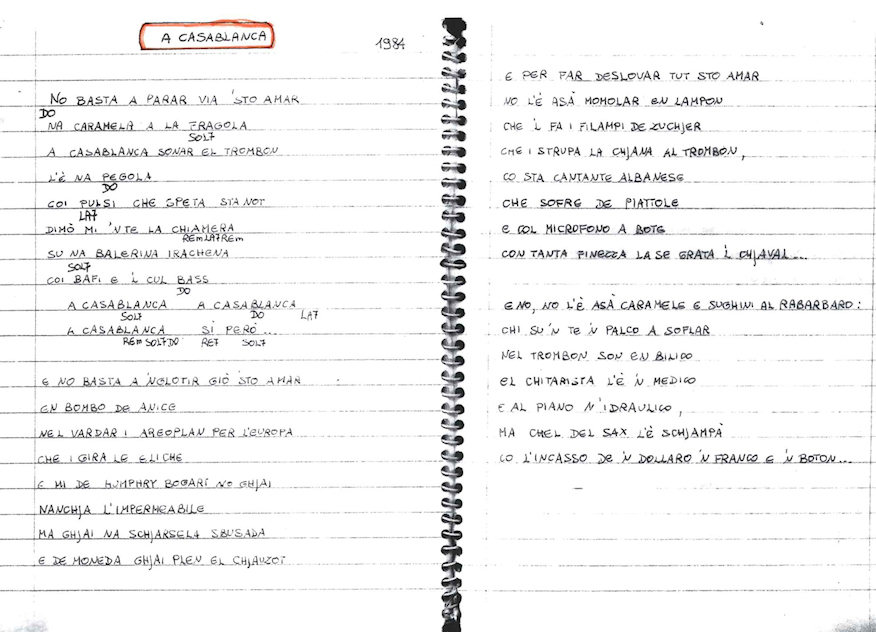 A CASABLANCA
1984
NO BASTA A PARAR VIA 'STO AMAR
DO
NA CARAMELA A LA FRAGOLA
SOL7
A CASABLANCA SONAR EL TROMBON
L'È NA PEGOLA
DO
COI PULSI CHE SPETA STANOT
LA7
DIMÒ MI 'N TE LA CHIAMERA
REm LA7 REm
SU NA BALERINA IRACHENA
SOL7
COI BAFI E 'L CUL BASS
DO
A CASABLANCA A CASABLANCA
SOL7 DO LA7
A CASABLANCA SÌ PERÒ...
REm SOL7 DO RE7 SOL7
E NO BASTA A 'NGLOTIR GIÒ 'STO AMAR
EN BOMBO DE ANICE
NEL VARDAR I AREOPLAN PER L'EUROPA
CHE I GIRA LE ELICHE
E MI DE HUMPHRY BOGART NO GHJAI
NANCHJA L'IMPERMEABILE
MA GHJAI NA SCHJARSELA SBUSADA
E DE MONEDA GHJAI PLEN EL CHJAUZOT
E PER FAR DESLOVAR TUT STO AMAR
NO L'È ASÀ MOMOLAR EN LAMPON
CHE 'L FA I FILAMPI DE ZUCHJER
CHE I STRUPA LA CHJANA AL TROMBON,
CO STA CANTANTE ALBANESE
CHE SOFRE DE PIATTOLE
E COL MICROFONO A BOTE
CON TANTA FINEZZA LA SE GRATA 'L CHJAVAL...
E NO, NO L'È ASÀ CARAMELE E SUGHINI AL RABARBARO:
CHI SU 'N TE 'N PALCO A SOFLAR
NEL TROMBON SON EN BILICO
EL CHITARISTA L'È 'N MEDICO
E AL PIANO N'IDRAULICO,
MA CHEL DEL SAX L'È SCHJAMPÀ
CO L'INCASSO DE 'N DOLLARO 'N FRANCO E 'N BOTON...